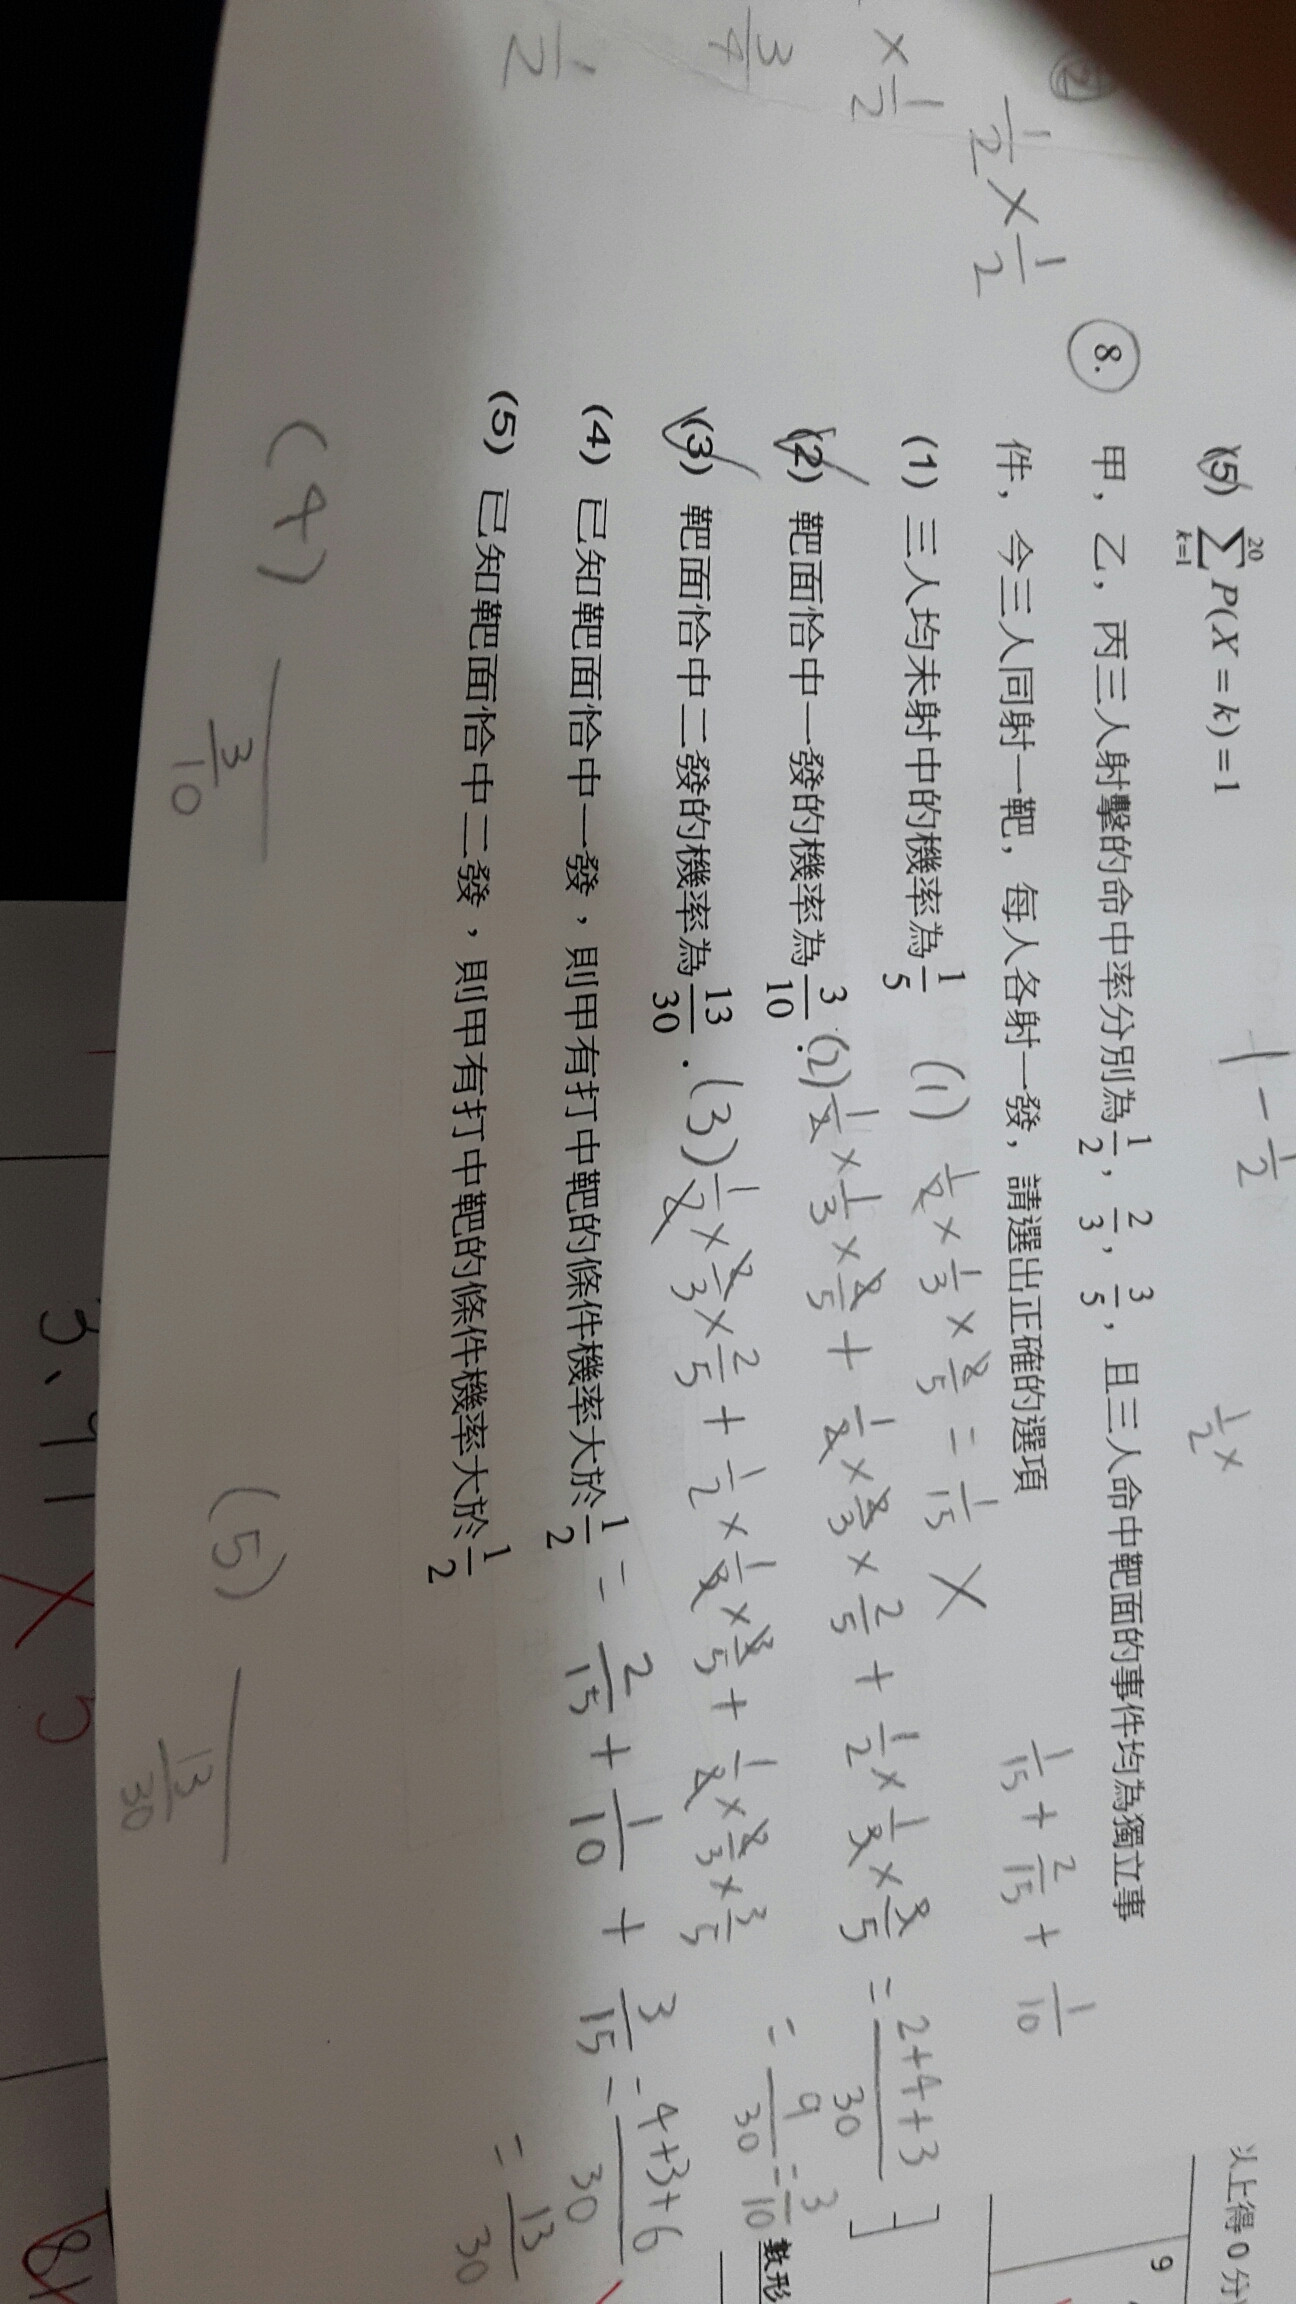 (5) \sum_{k=1}^{20} P(X=k)=1
1 - 1/2
1/2 ×
8. 甲，乙，丙三人射擊的命中率分別為 1/2，2/3，3/5，且三人命中靶面的事件均為獨立事
件，今三人同射一靶，每人各射一發，請選出正確的選項
1/15 + 2/15 + 1/10
(1) 三人均未射中的機率為 1/5 (1) 1/2 × 1/3 × 2/5 = 1/15 ×
(2) 靶面恰中一發的機率為 3/10 . (2) 1/2 × 1/3 × 2/5 + 1/2 × 2/3 × 2/5 + 1/2 × 1/3 × 3/5 = 2+4+3/30
= 9/30 = 3/10
(3) 靶面恰中二發的機率為 13/30 . (3) 1/2 × 2/3 × 2/5 + 1/2 × 1/3 × 3/5 + 1/2 × 2/3 × 3/5
(4) 已知靶面恰中一發，則甲有打中靶的條件機率大於 1/2 = 2/15 + 1/10 + 3/15 = 4+3+6/30
= 13/30
(5) 已知靶面恰中二發，則甲有打中靶的條件機率大於 1/2
(4) 3/10
(5) 13/30
1/2 × 1/2
× 1/2
3/4
1/2
2
以上得0分
9
數形
3、91 × 5